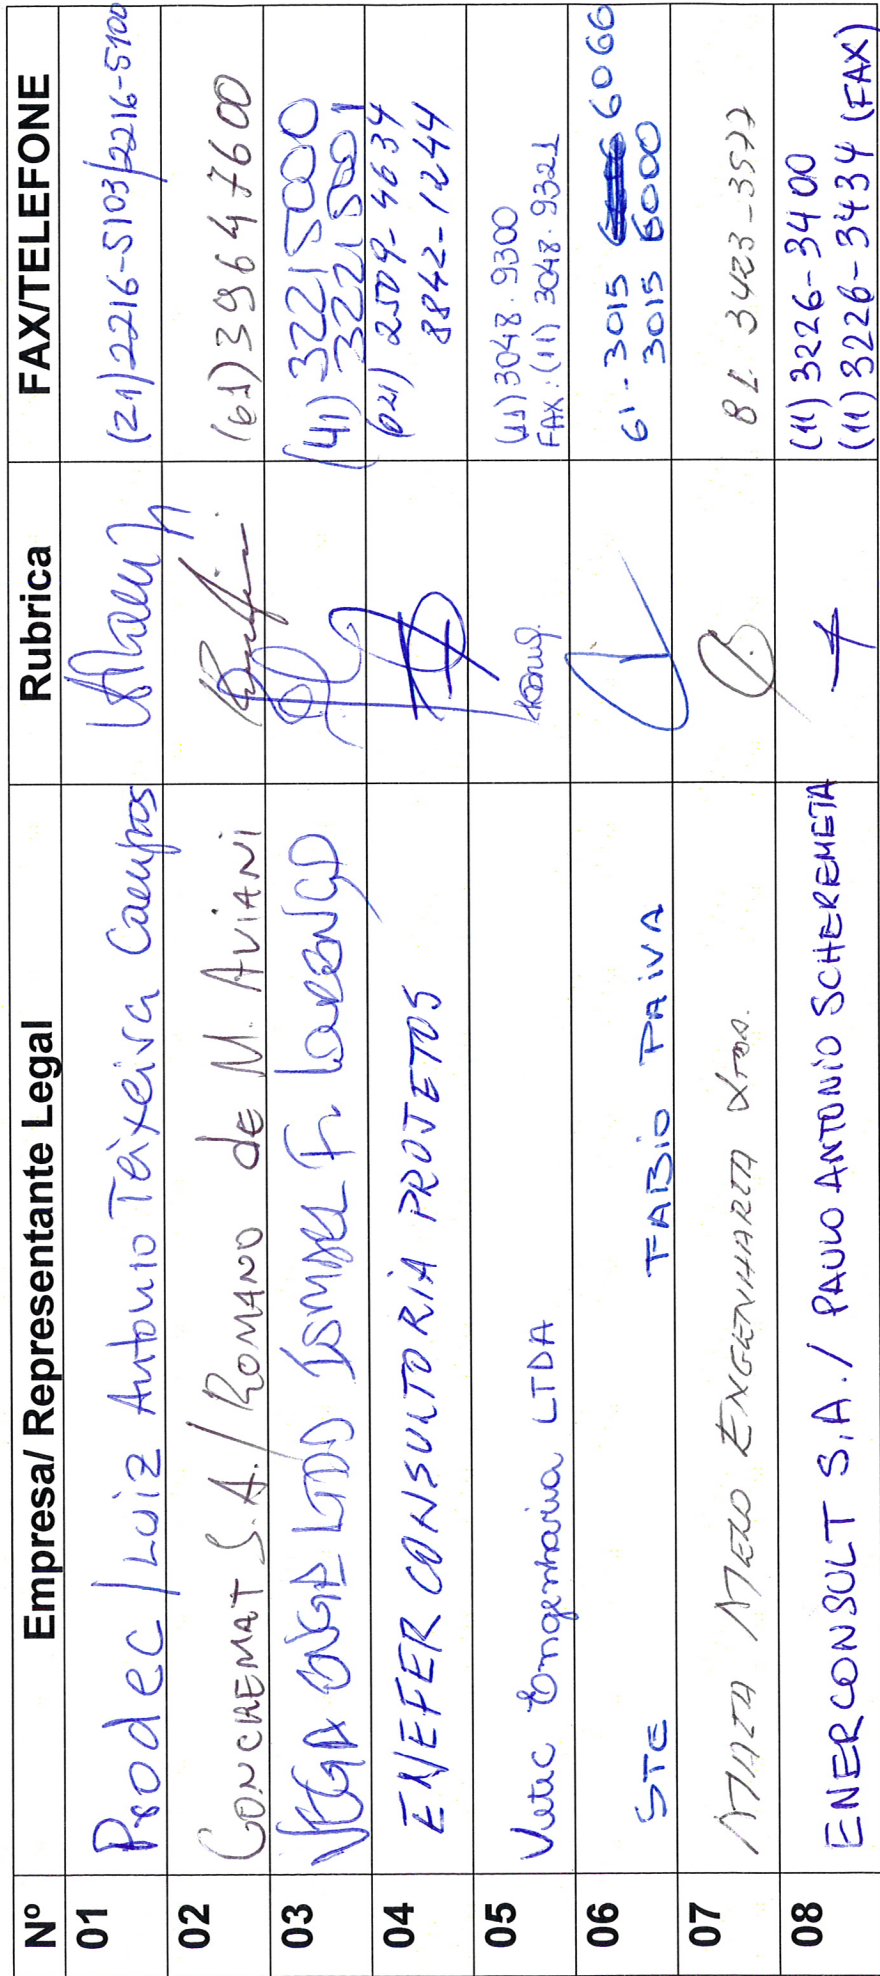 Nº Empresa/ Representante Legal Rubrica FAX/TELEFONE
01 Prodec / Luiz Antonio Teixeira Campos (21) 2216-5103/2216-5100
02 CONCREMAT S.A. / ROMANO de M. AVIANI (61) 39647600
03 VEGA ENGA LTDA ISMAEL F. LOURENÇO (41) 3221 5000
3221 5001
04 ENEFER CONSULTORIA PROJETOS (021) 2509-4634
8842-1244
05 Vetec Engenharia LTDA (11) 3048.9300
FAX: (11) 3048.9321
06 STE FABIO PAIVA 61-3015 6066
3015 6000
07 MAIA MELO ENGENHARIA LTDA. 81. 3423-3977
08 ENERCONSULT S.A. / PAULO ANTONIO SCHEREMETA (11) 3226-3400
(11) 3226-3434 (FAX)